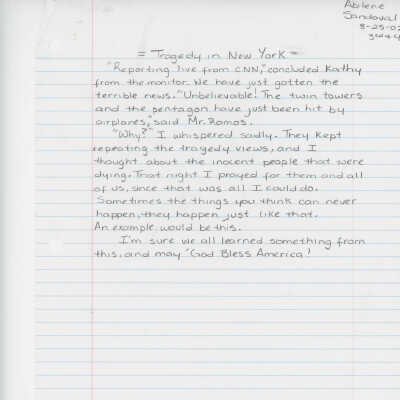 Abilene
Sandoval
8-25-02
= Tragedy in New York =
"Reporting live from CNN," concluded Kathy
from the monitor. We have just gotten the
terrible news. "Unbelievable! The twin towers
and the pentagon have just been hit by
airplanes," said Mr. Ramos.
"Why?" I whispered sadly. They kept
repeating the tragedy views, and I
thought about the inocent people that were
dying. That night I prayed for them and all
of us, since that was all I could do.
Sometimes the things you think can never
happen, they happen just like that.
An example would be this.
I'm sure we all learned something from
this, and may "God Bless America!